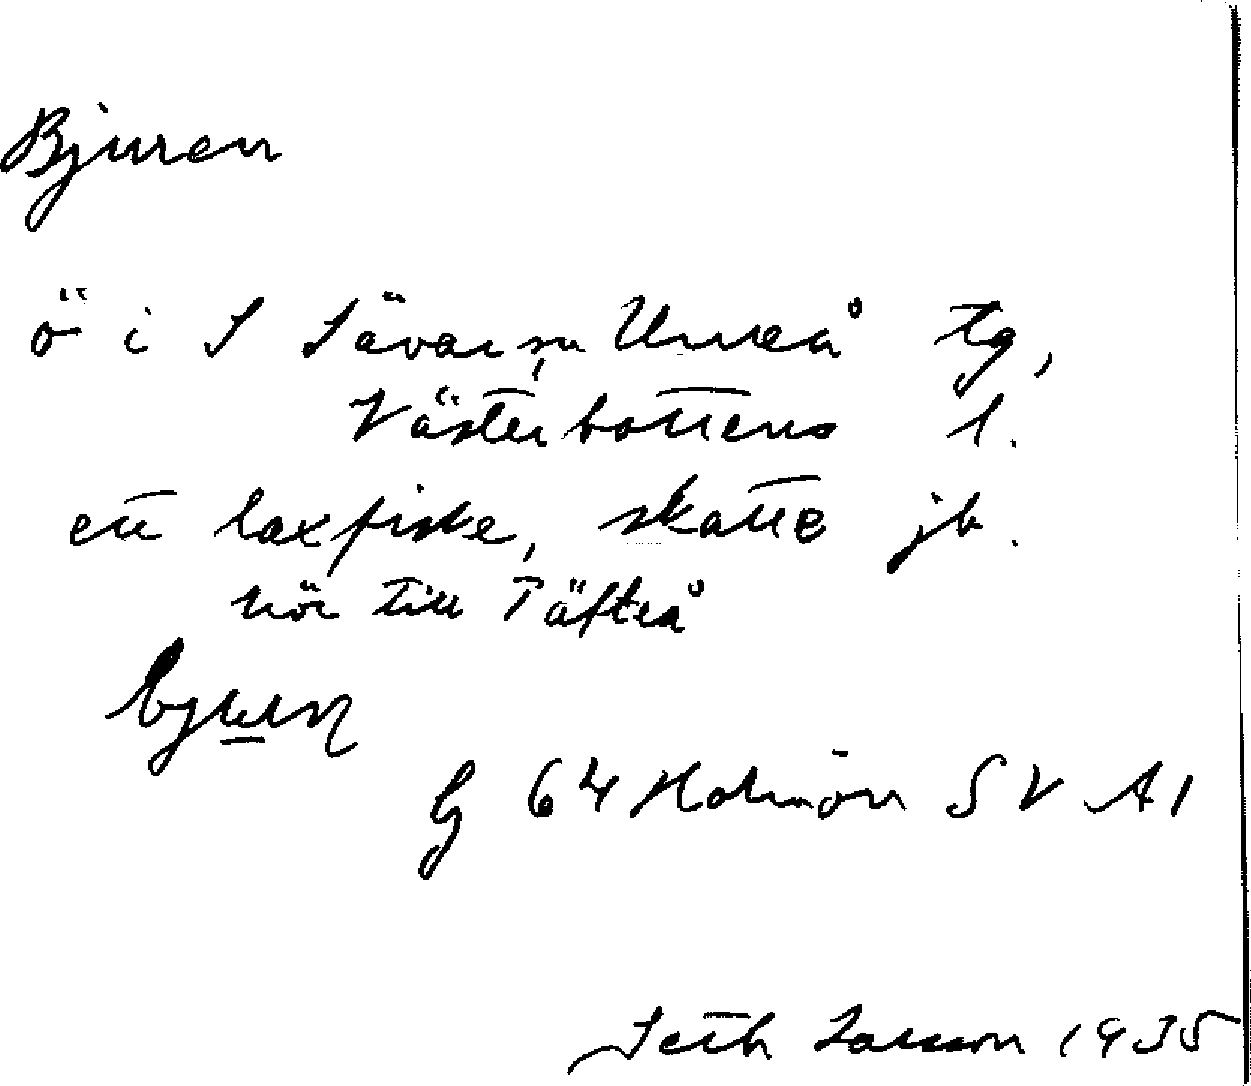 Bjuren
ö i S Sävar sn, Umeå tg,
Västerbottens l.
ett laxfiske, skatte jb.
hör till Täfteå
G 64 Holmön S V A 1
Seth Larsson 1935